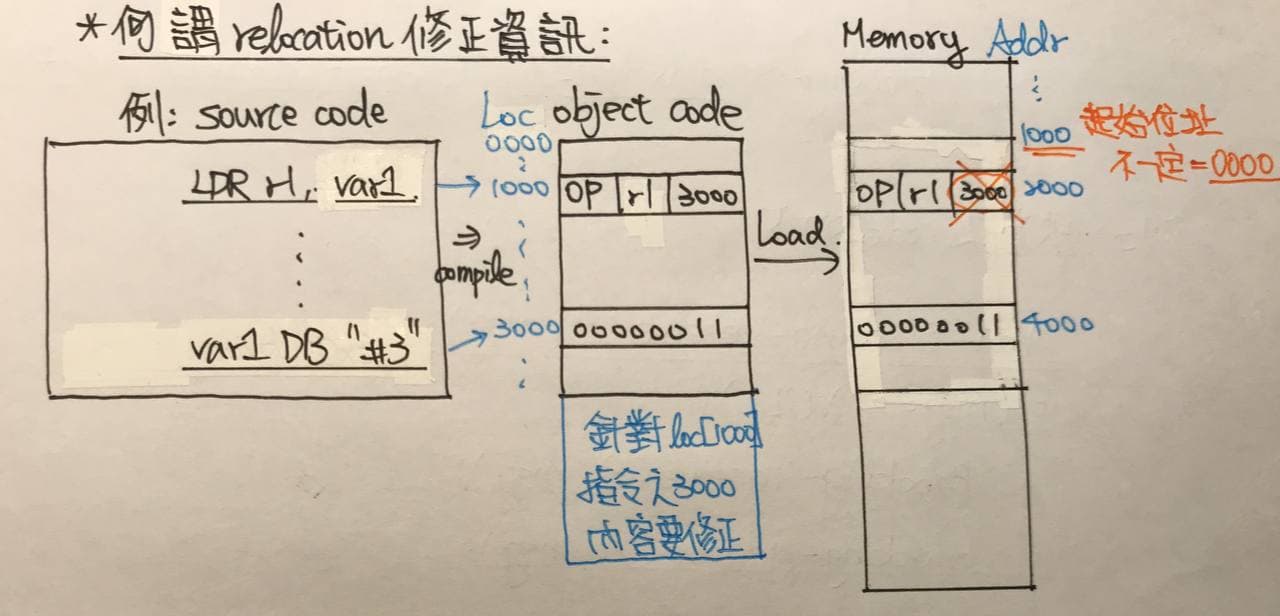 *何謂 relocation 修正資訊:
例: source code
LDR r1, var1
var1 DB "#3"
⇒
compile
Loc object code
0000
1000 OP r1 3000
3000 00000011
針對 loc[1000]
指令之3000
內容要修正
Load
→
Memory Addr
1000 起始位址
不一定=0000
OP r1 3000 2000
00000011 4000